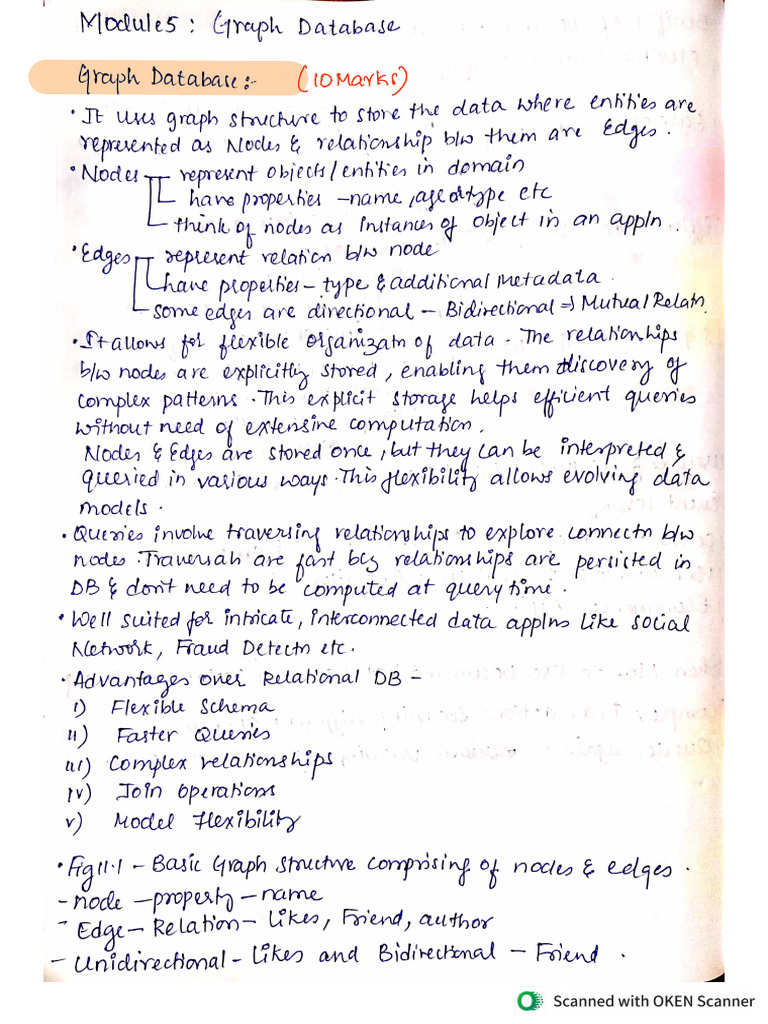 Module5 : Graph Database
Graph Database :- (10 Marks)
• It uses graph structure to store the data where entities are
represented as Nodes & relationship b/w them are Edges.
• Nodes - represent objects/entities in domain
- have properties - name, age or type etc
- think of nodes as instances of object in an appln.
• Edges - represent relation b/w node
- have properties - type & additional metadata.
- some edges are directional - Bidirectional => Mutual Relatn.
• It allows for flexible organizatn of data. The relationships
b/w nodes are explicitly stored, enabling them discovery of
complex patterns. This explicit storage helps efficient queries
without need of extensive computation.
Nodes & Edges are stored once, but they can be interpreted &
queried in various ways. This flexibility allows evolving data
models.
• Queries involve traversing relationships to explore connectn b/w
nodes. Traversals are fast bcz relationships are persisted in
DB & don't need to be computed at query time.
• Well suited for intricate, interconnected data applns like social
Network, Fraud Detectn etc.
• Advantages over Relational DB -
i) Flexible Schema
ii) Faster Queries
iii) Complex relationships
iv) Join Operations
v) Model Flexibility
• Fig 11.1 - Basic Graph structure comprising of nodes & edges.
- node - property - name
- Edge - Relation - Likes, Friend, author
- Unidirectional - Likes and Bidirectional - Friend.
Scanned with OKEN Scanner